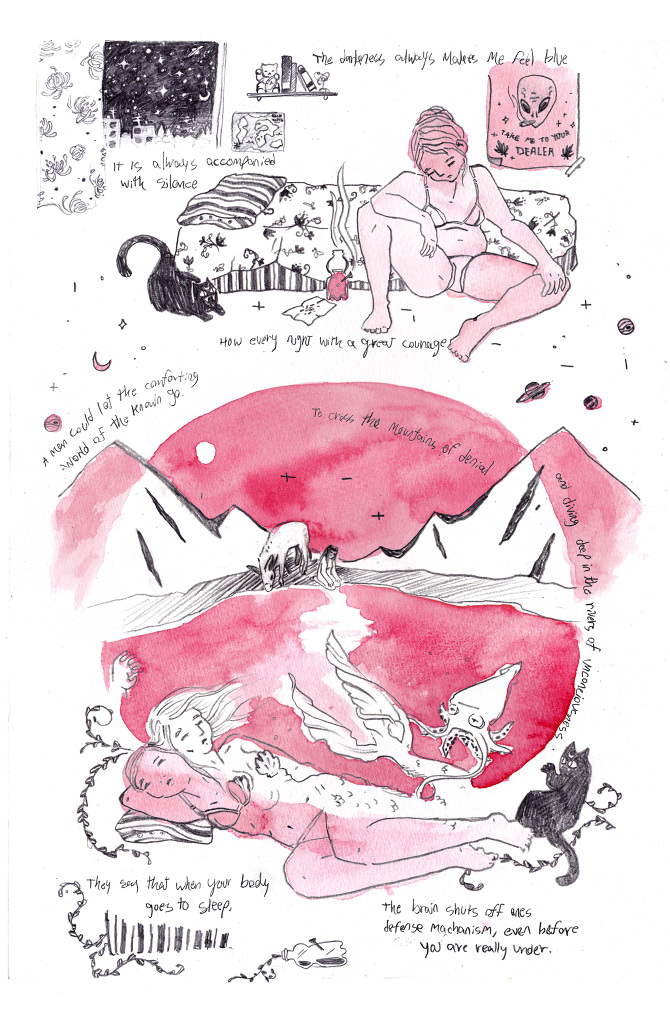 The darkness always makes me feel blue
TAKE ME TO YOUR
DEALER
It is always accompanied
with silence
How every night with a great courage
A man could let the comforting
world of the known go.
To cross the mountains of denial
and diving deep in the rivers of unconciovsness.
They say that when your body
goes to sleep,
The brain shuts off ones
defense machanism, even before
you are really under.